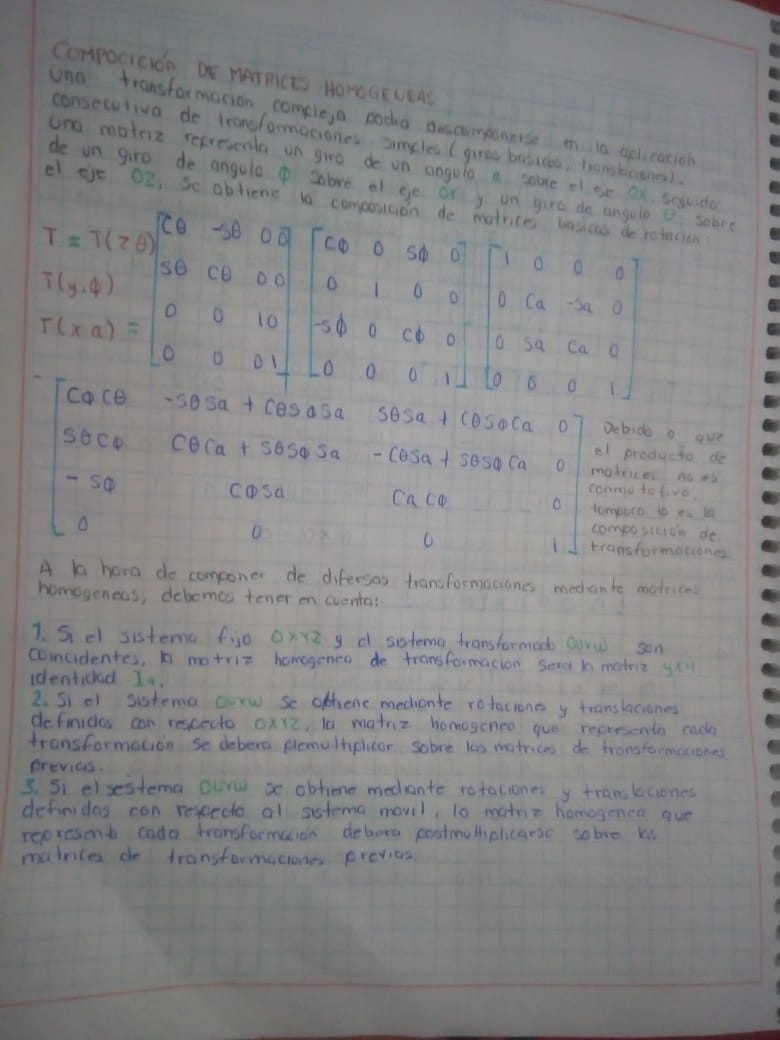 COMPOCICIÓN DE MATRICES HOMOGENEAS
una transformación compleja podra descomponerse en la aplicación
consecutiva de transformaciones simples (giros basicos, translaciones).
una matriz representa un giro de un angulo a sobre el eje Ox, seguido
de un giro de angulo ϕ sobre el eje OY y un giro de angulo sobre
el eje OZ, se obtiene la composición de matrices basicas de rotación:
T = T(zθ) [Cθ -Sθ 0 0] [Cϕ 0 Sϕ 0] [1 0 0 0]
T(y,ϕ) [Sθ Cθ 0 0] [0 1 0 0] [0 Ca -Sa 0]
T(x a) = [0 0 1 0] [-Sϕ 0 Cϕ 0] [0 Sa Ca 0]
[0 0 0 1] [0 0 0 1] [0 0 0 1]
[CϕCθ -SθSa + CθSϕSa SθSa + CθSϕCa 0]
SθCϕ CθCa + SθSϕSa -CθSa + SθSϕCa 0
-Sϕ CϕSa CaCϕ 0
0 0 0 1
Debido a que
el producto de
matrices no es
conmutativo,
tampoco lo es la
composición de
transformaciones
A la hora de componer de difersas transformaciones mediante matrices
homogeneas, debemos tener en cuenta:
1. Si el sistema fijo OXYZ y el sistema transformado Ouvw son
coincidentes, la matriz homogenea de transformacion sera la matriz 4x4
identidad I4.
2. Si el sistema Ouvw se obtiene mediante rotaciones y translaciones
definidas con respecto OXYZ, la matriz homogenea que representa cada
transformación se debera premultiplicar sobre las matrices de transformaciones
previas.
3. Si el sestema Ouvw se obtiene mediante rotaciones y translaciones
definidas con respecto al sistema movil, la matriz homogenea que
representa cada transformación debera postmultiplicarse sobre las
matrices de transformaciones previas.